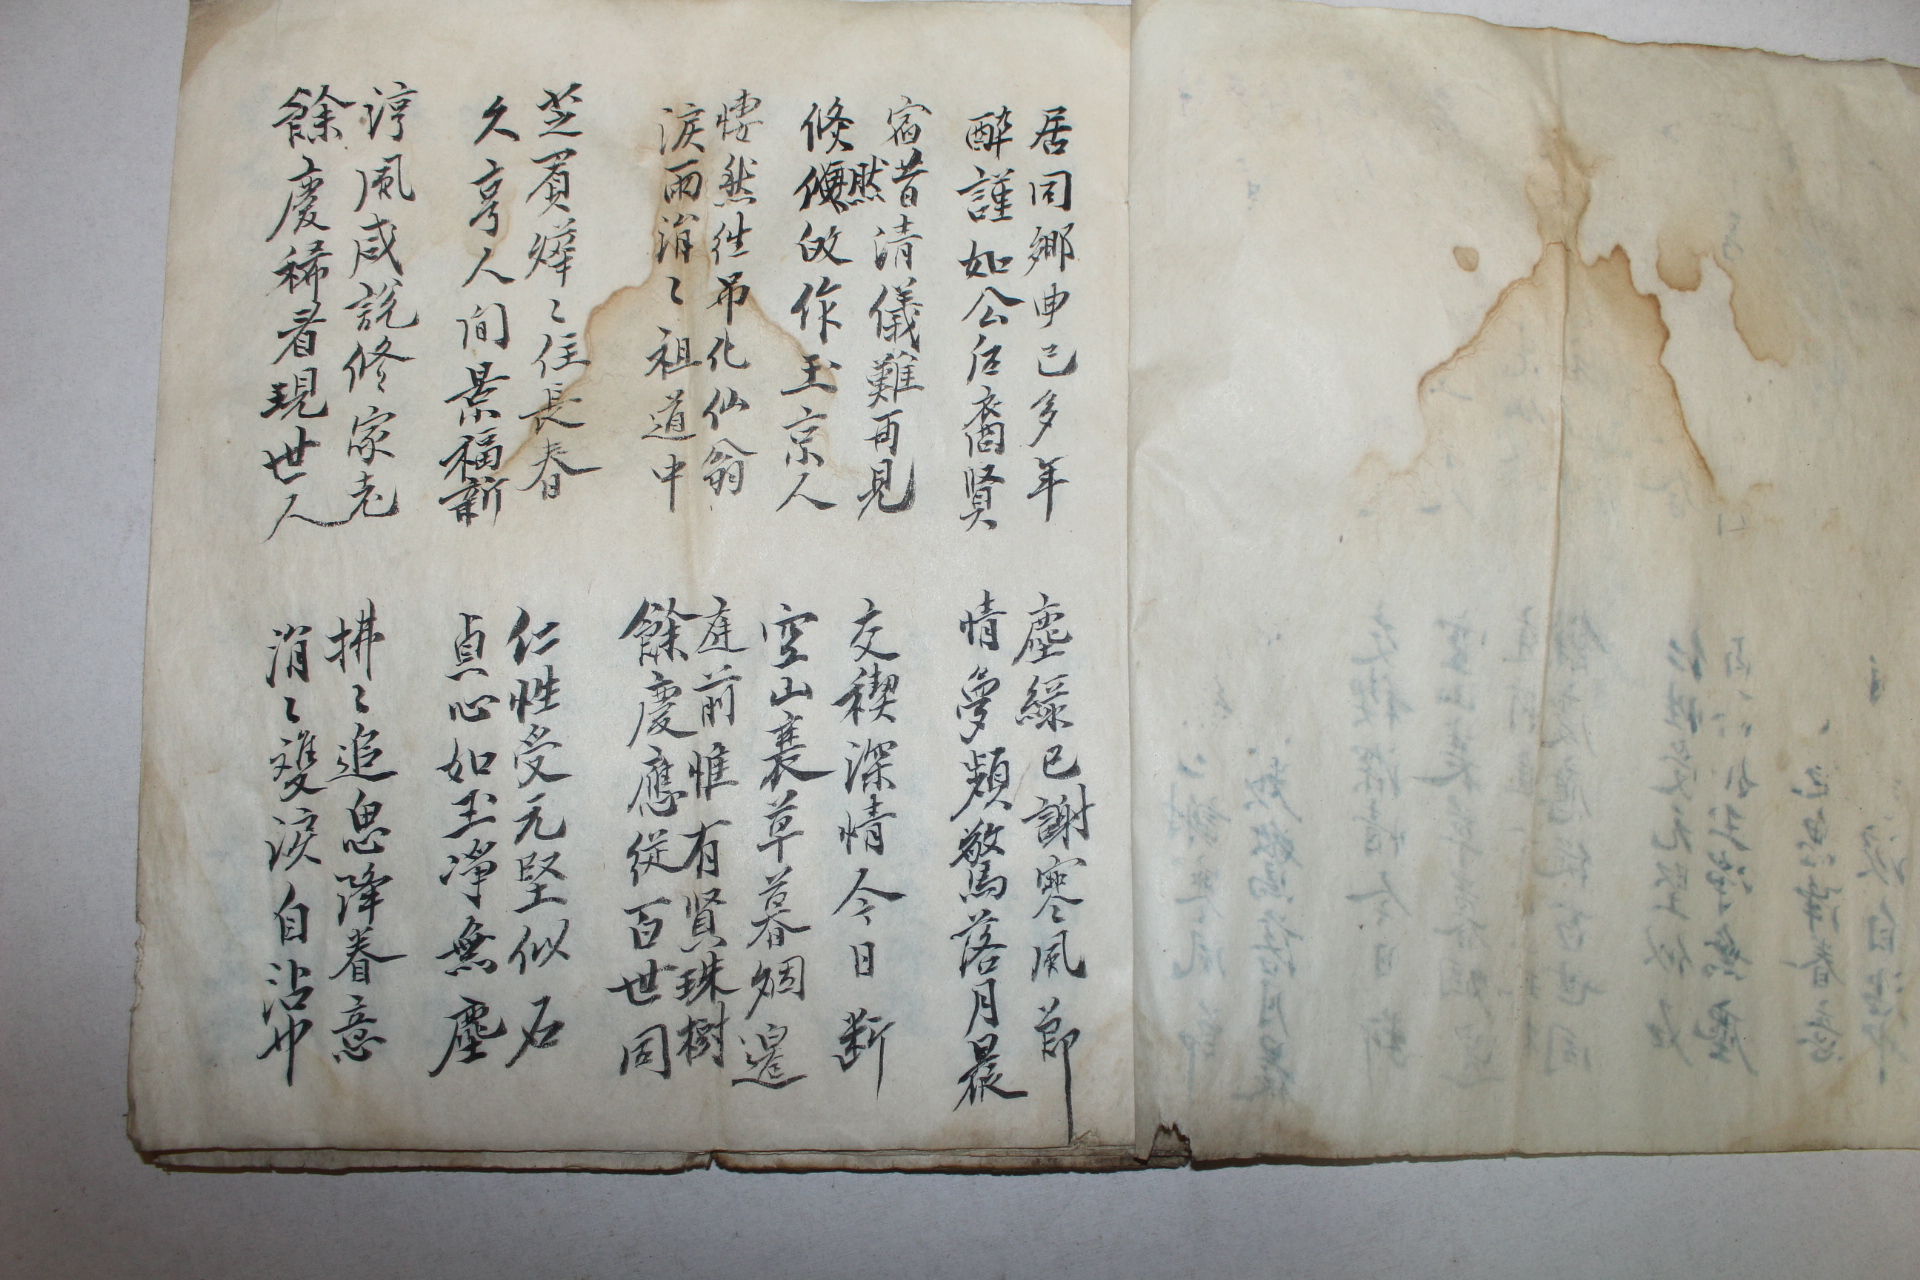 居同鄉申已多年
醉謹如公后裔賢
塵緣已謝寒風節
情夢頻驚落月晨
宿昔清儀難再見
倏然改作玉京人
交稧深情今日断
空山衰草暮烟邊
悽然往吊化仙翁
淚雨涓〻祖道中
庭前惟有賢珠樹
餘慶應從百世同
芝眉燁〻住長春
久享人间景福新
仁性受元堅似石
貞心如玉净無塵
諄風咸說修家老
餘慶稀看現世人
拂〻追思降眷意
涓〻雙淚自沾巾